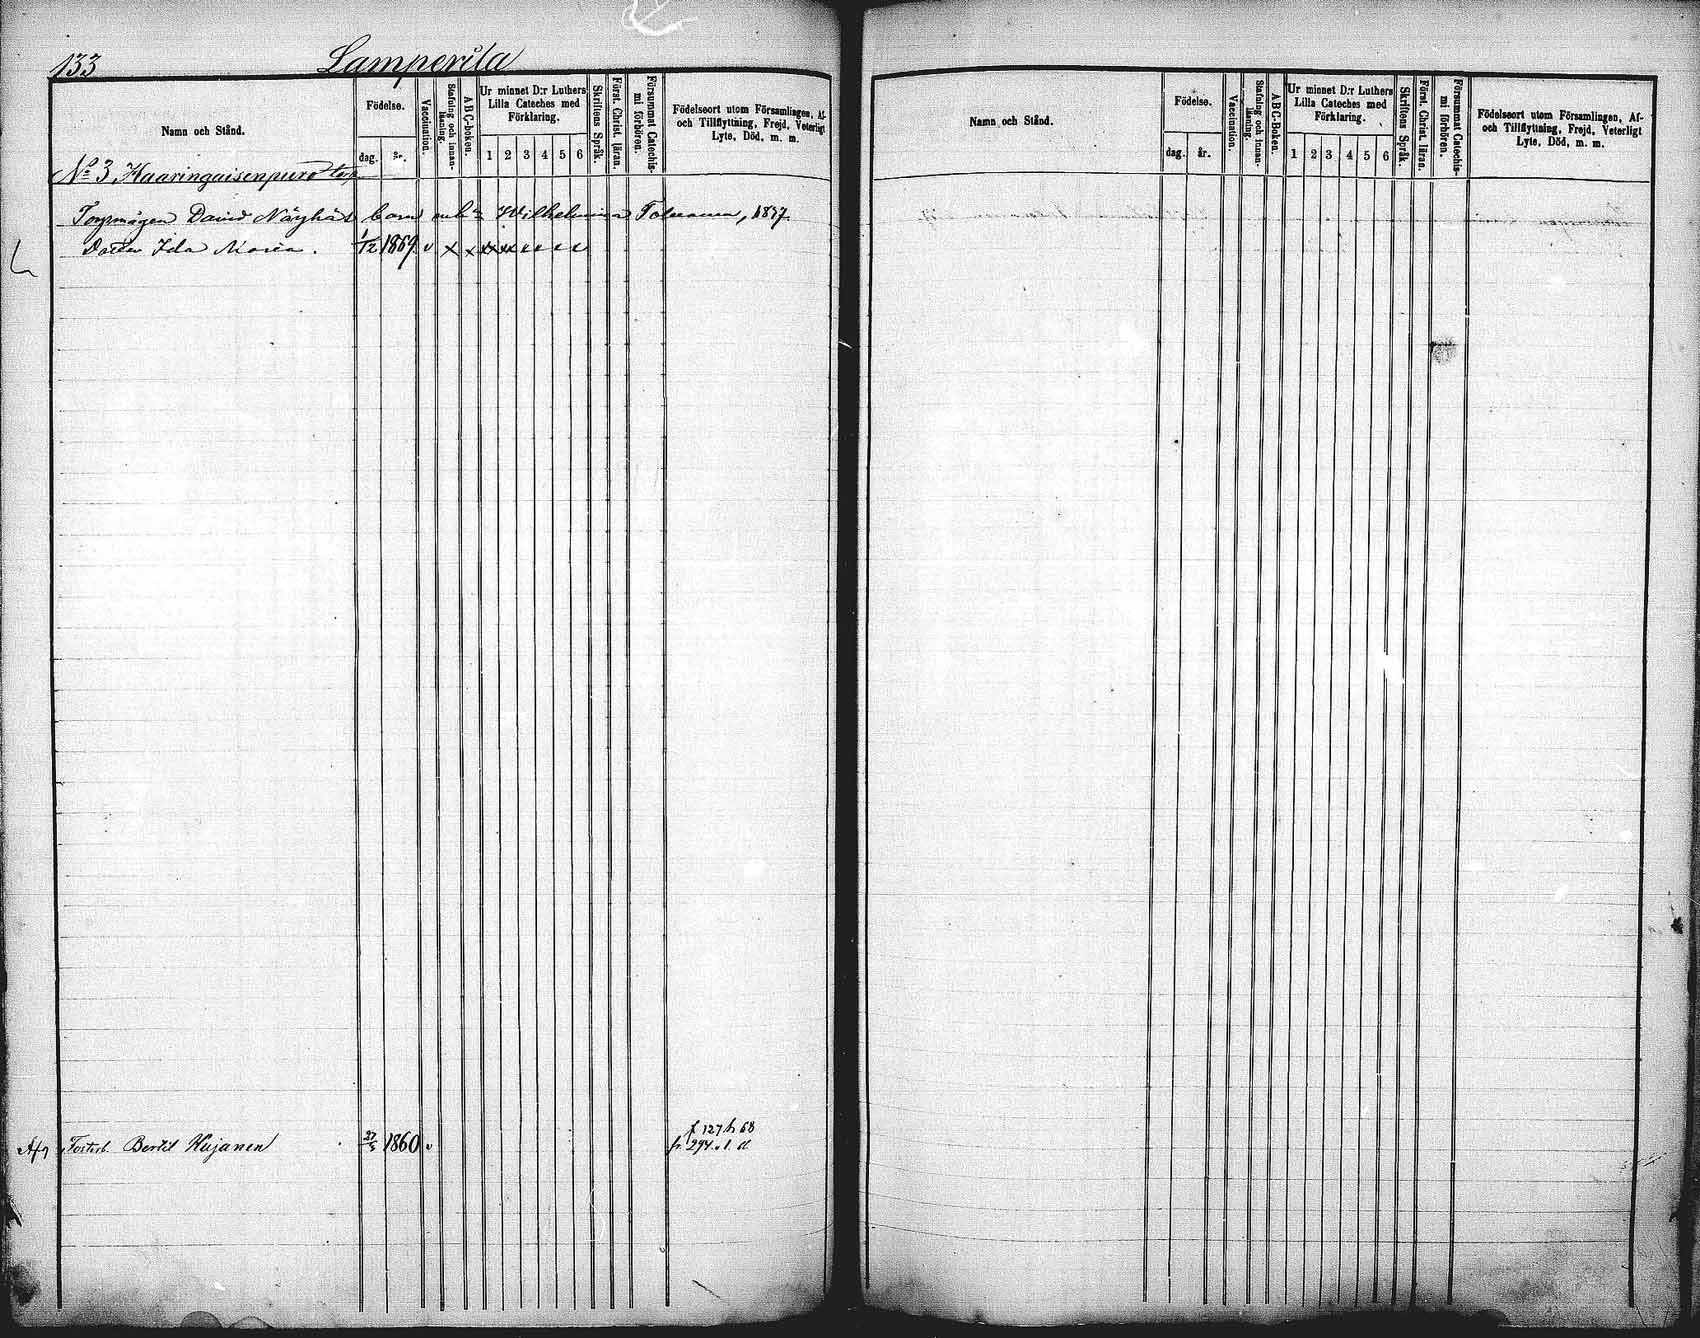 133 Lamperila
Namn och Stånd.
Födelse.
dag. år.
Vaccination.
Stafning och innan-läsning.
ABC-boken.
Ur minnet D:r Luthers
Lilla Cateches med
Förklaring.
1 2 3 4 5 6
Skriftens Språk.
Först. Christ. läran.
Försummat Catechis-
mi förhören.
Födelseort utom Församlingen, Af-
och Tillflyttning, Frejd, Veterligt
Lyte, Död, m. m.
No 3, Haaringaisenpuro torp
David Näyhäs barn Wilhelmina 1837
Dotter Ida Maria. 1/12 1869 v x x x x x x x x
Fosterb. Bertil Kujanen 27/5 1860 v
f 127 h 68
fr. 294. v. l. d
Namn och Stånd.
Födelse.
dag. år.
Vaccination.
Stafning och innan-läsning.
ABC-Boken.
Ur minnet D:r Luthers
Lilla Cateches med
Förklaring.
1 2 3 4 5 6
Skriftens Språk.
Först. Christ. läran.
Försummat Catechis-
mi förhören.
Födelseort utom Församlingen, Af-
och Tillflyttning, Frejd, Veterligt
Lyte, Död, m. m.